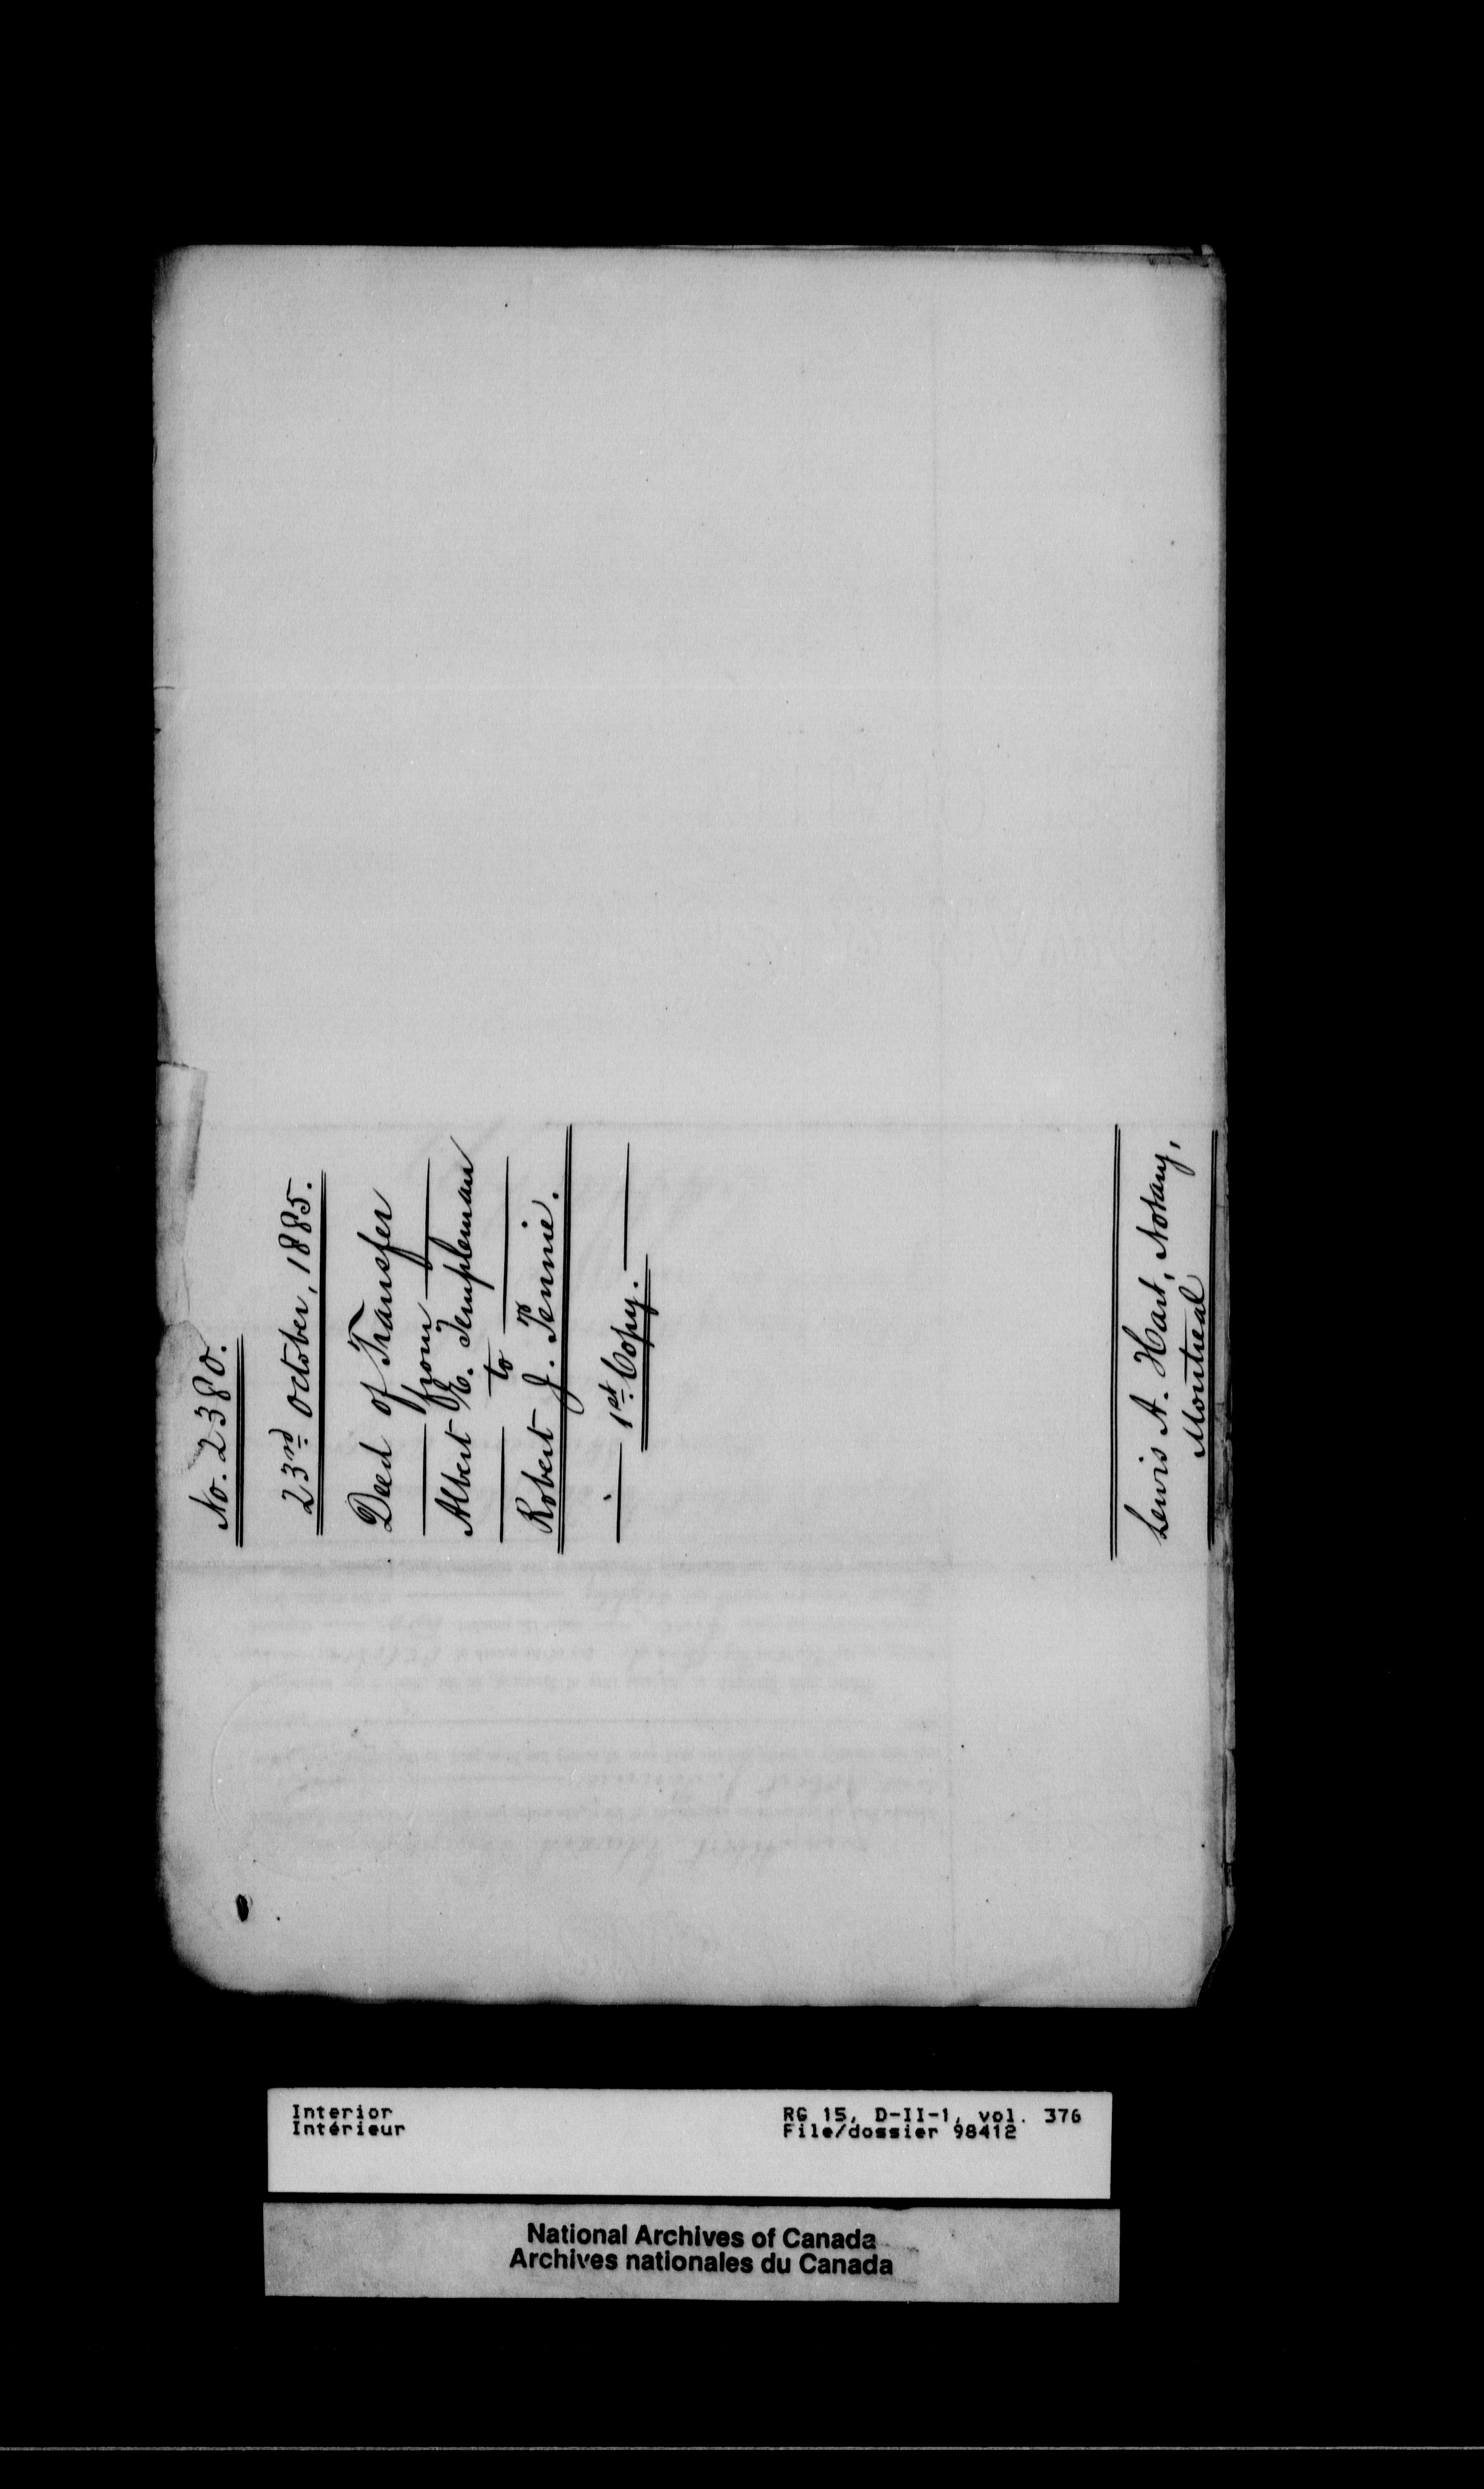 No. 2380.
23rd October, 1885.
Deed of Transfer
from
Albert E. Templeman
to
Robert J. Tennie.
1st Copy.
Lewis A. Hart, Notary,
Montreal
Interior
Intérieur
RG 15, D-II-1, vol. 376
File/dossier 98412
National Archives of Canada
Archives nationales du Canada